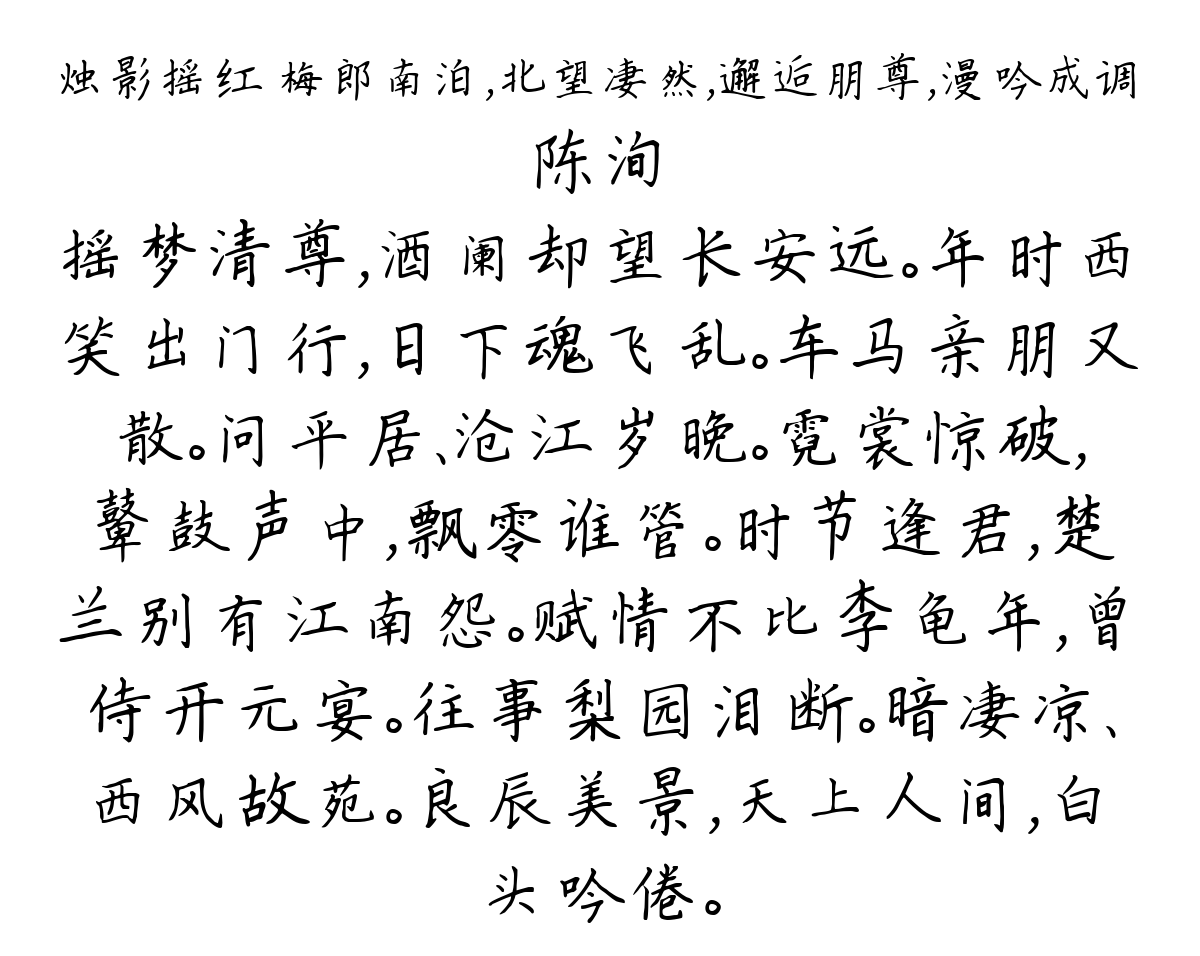 烛影摇红 梅郎南泊,北望凄然,邂逅朋尊,漫吟成调
陈洵
摇梦清尊,酒阑却望长安远。年时西
笑出门行,日下魂飞乱。车马亲朋又
散。问平居、沧江岁晚。霓裳惊破,
鼙鼓声中,飘零谁管。时节逢君,楚
兰别有江南怨。赋情不比李龟年,曾
侍开元宴。往事梨园泪断。暗凄凉、
西风故苑。良辰美景,天上人间,白
头吟倦。